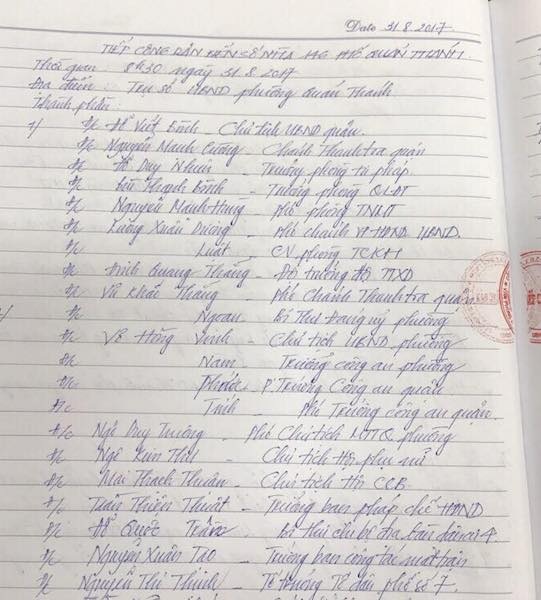 Date 31.8.2017
TIẾP CÔNG DÂN ĐẾN SỐ NHÀ 146 PHỐ QUÁN THÁNH
Thời gian: 8h30 ngày 31.8.2017
Địa điểm: Trụ sở UBND phường Quán Thánh
Thành phần:
1/ Đ/c Đỗ Viết Bình - Chủ tịch UBND quận.
Đ/c Nguyễn Mạnh Cường - Chánh Thanh tra quận
Đ/c Đỗ Duy - Trưởng phòng tư pháp
Đ/c Bùi Thanh Bình - Trưởng phòng QLĐT
Đ/c Nguyễn Mạnh Hùng - Phó phòng TNMT
Đ/c Lương Xuân Dương - Phó chánh VP HĐND. UBND.
Đ/c Luật - CV phòng TCKH
Đ/c Đinh Quang Thắng - Đội trưởng đội TTXD
Đ/c Vũ Khắc Thắng Phó Chánh Thanh tra quận
Đ/c Ngoan - Bí thư Đảng uỷ phường
Đ/c Võ Hồng Vinh - Chủ tịch UBND phường
Đ/c Nam - Trưởng công an phường
Đ/c - P Trưởng Công an quận
Đ/c - Phó Trưởng công an quận.
Đ/c Ngô Duy - Phó Chủ tịch MTTQ phường
Đ/c Ngô - Chủ tịch Hội phụ nữ
Đ/c Mai Thạch Thuân - Chủ tịch Hội CCB.
Đ/c Trần Thiện Thuật - Trưởng ban pháp chế HĐND
Đ/c Đỗ Quốc - Bí thư chi bộ địa bàn dân cư 4.
Đ/c Nguyễn Xuân Tảo - Trưởng ban công tác mặt trận
Đ/c Nguyễn Thị Thịnh - Tổ trưởng Tổ dân phố số 7.